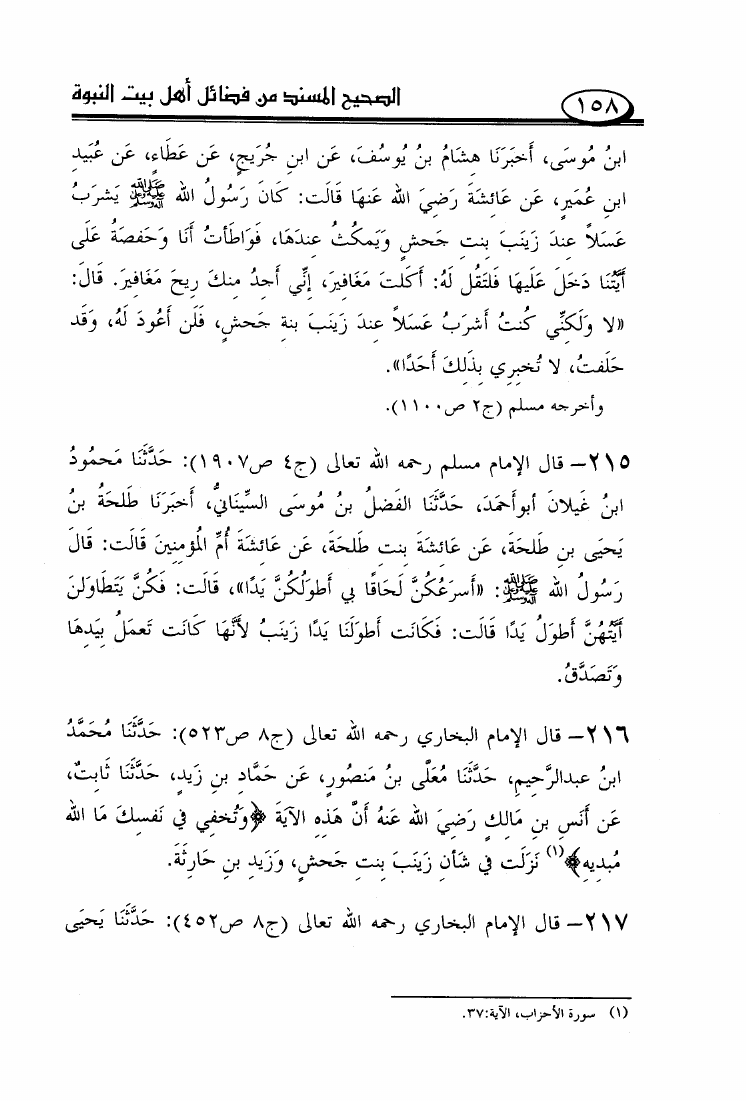 ١٥٨ الصحيح المسند من فضائل أهل بيت النبوة
ابنُ مُوسَى، أَخبَرَنَا هِشَامُ بنُ يُوسُفَ، عَن ابنِ جُرَيجٍ، عَن عَطَاءٍ، عَن عُبَيدِ
ابنِ عُمَيرٍ، عَن عَائِشَةَ رَضِيَ الله عَنهَا قَالَت: كَانَ رَسُولُ الله ﷺ يَشرَبُ
عَسَلاً عِندَ زَينَبَ بِنتِ جَحشٍ وَيَمكُثُ عِندَهَا، فَوَاطَأتُ أَنَا وَحَفصَةُ عَلَى
أَيَّتُنَا دَخَلَ عَلَيهَا فَلتَقُل لَهُ: أَكَلتَ مَغَافِيرَ، إِنِّي أَجِدُ مِنكَ رِيحَ مَغَافِيرَ. قَالَ:
«لا وَلَكِنِّي كُنتُ أَشرَبُ عَسَلاً عِندَ زَينَبَ بنةِ جَحشٍ، فَلَن أَعُودَ لَهُ، وَقَد
حَلَفتُ، لا تُخبِرِي بِذَلِكَ أَحَدًا».
وأخرجه مسلم (ج٢ ص١١٠٠).
٢١٥- قال الإمام مسلم رحمه الله تعالى (ج٤ ص١٩٠٧): حَدَّثَنَا مَحمُودُ
ابنُ غَيلانَ أبوأَحمَدَ، حَدَّثَنَا الفَضلُ بنُ مُوسَى السِّينَانِيُّ، أَخبَرَنَا طَلحَةُ بنُ
يَحيَى بنِ طَلحَةَ، عَن عَائِشَةَ بِنتِ طَلحَةَ، عَن عَائِشَةَ أُمِّ المُؤمِنِينَ قَالَت: قَالَ
رَسُولُ الله ﷺ: «أَسرَعُكُنَّ لَحَاقًا بِي أَطوَلُكُنَّ يَدًا»، قَالَت: فَكُنَّ يَتَطَاوَلنَ
أَيَّتُهُنَّ أَطوَلُ يَدًا قَالَت: فَكَانَت أَطوَلَنَا يَدًا زَينَبُ لأَنَّهَا كَانَت تَعمَلُ بِيَدِهَا
وَتَصَدَّقُ.
٢١٦- قال الإمام البخاري رحمه الله تعالى (ج٨ ص٥٢٣): حَدَّثَنَا مُحَمَّدُ
ابنُ عبدالرَّحِيمِ، حَدَّثَنَا مُعَلَّى بنُ مَنصُورٍ، عَن حَمَّادِ بنِ زَيدٍ، حَدَّثَنَا ثَابِتٌ،
عَن أَنَسِ بنِ مَالِكٍ رَضِيَ الله عَنهُ أَنَّ هَذِهِ الآيَةَ ﴿وَتُخفِي فِي نَفسِكَ مَا الله
مُبدِيهِ﴾(١) نَزَلَت فِي شَأنِ زَينَبَ بِنتِ جَحشٍ، وَزَيدِ بنِ حَارِثَةَ.
٢١٧- قال الإمام البخاري رحمه الله تعالى (ج٨ ص٤٥٢): حَدَّثَنَا يَحيَى
(١) سورة الأحزاب، الآية:٣٧.